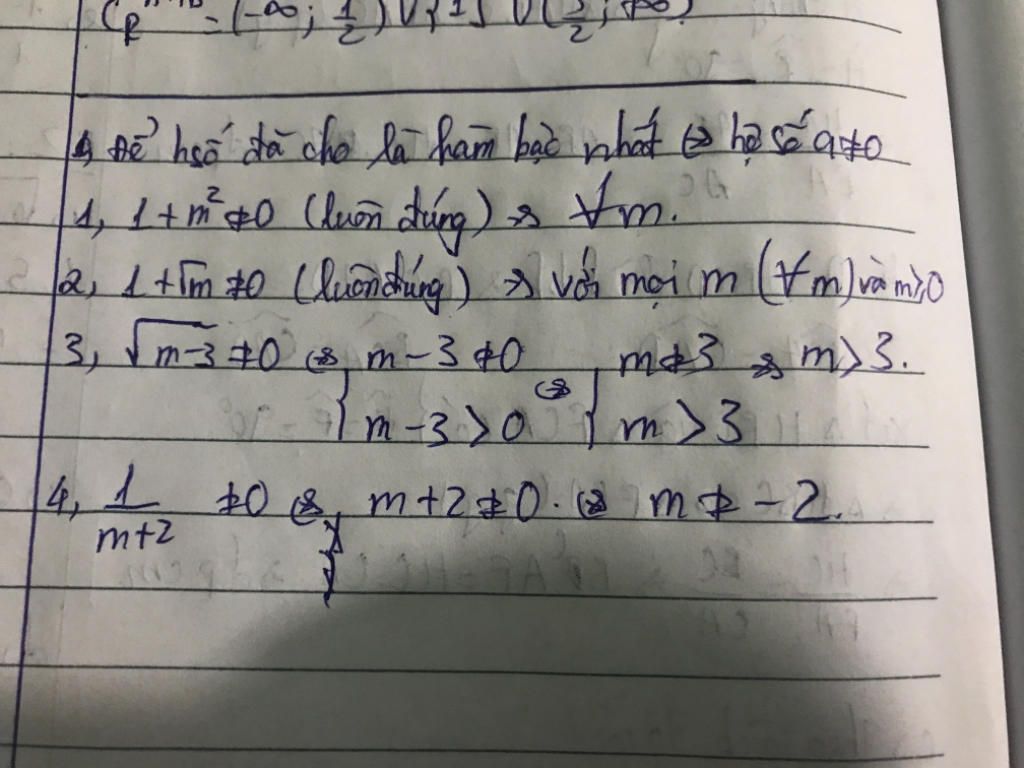 C_R = (-∞; 1/2) ∪ {1} ∪ (; +∞)
Để hsố đã cho là hàm bậc nhất ⇔ hệ số a≠0
1, 1+m² ≠0 (luôn đúng) ⇒ ∀m.
2, 1+√m ≠0 (luôn đúng) ⇒ với mọi m (∀m) và m≥0
3, √(m-3) ≠0 ⇔ { m-3≠0 ⇔ { m≠3 ⇒ m>3.
m-3>0 m>3
4, 1/(m+2) ≠0 ⇔ m+2≠0. ⇔ m≠-2.